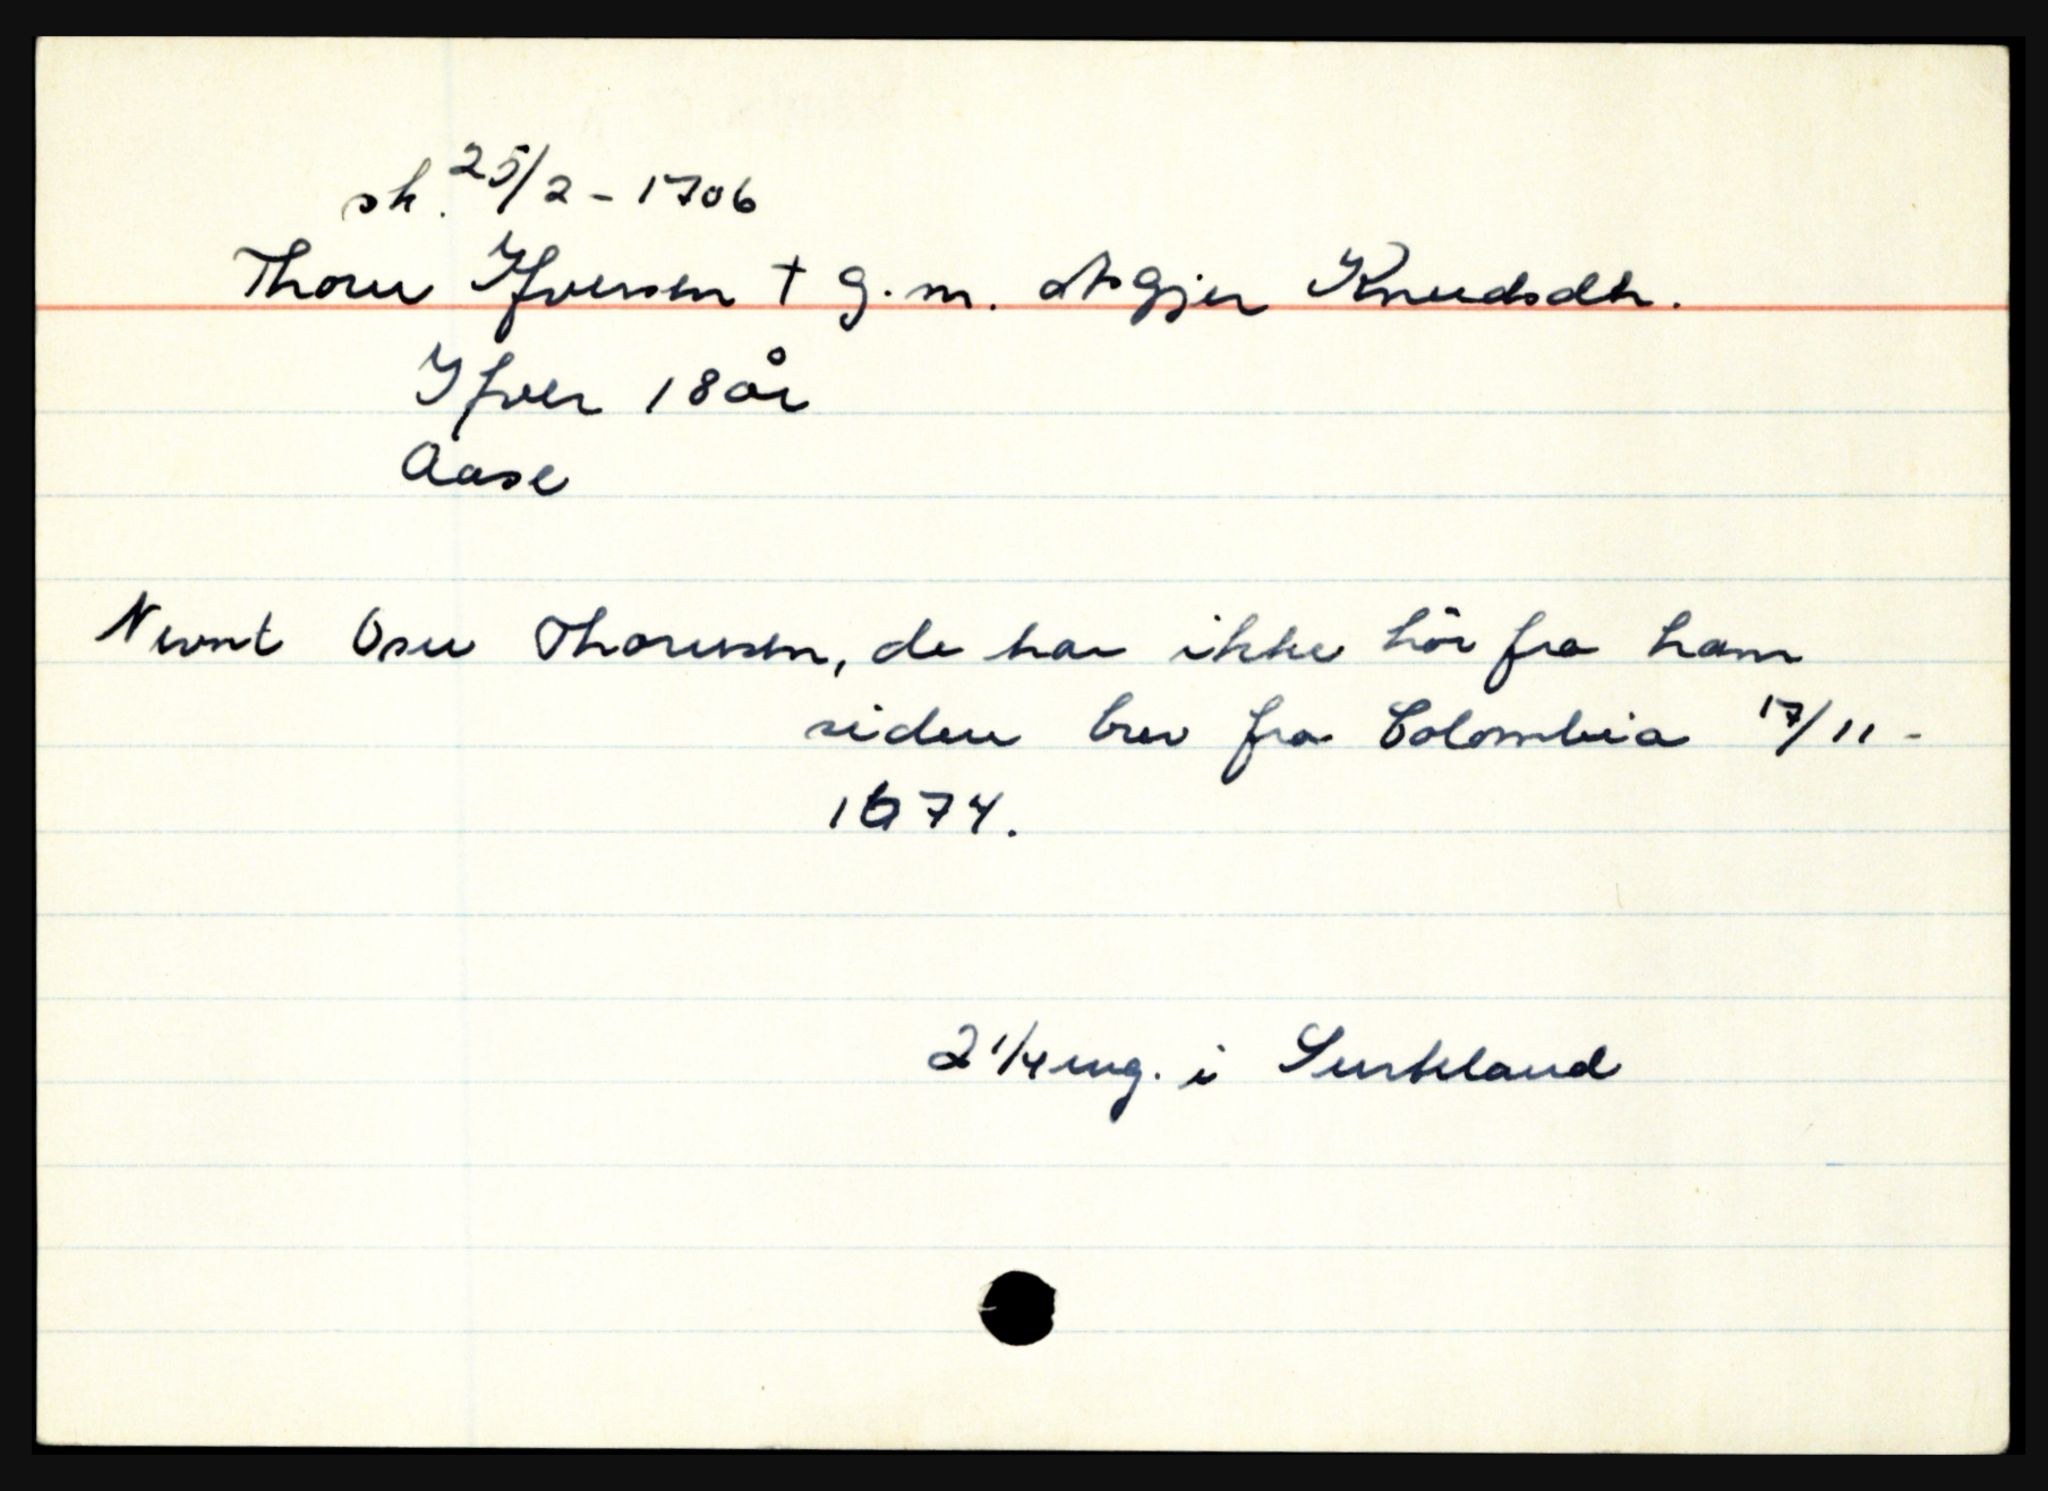 sk. 25/2 - 1706
Thore Ifversen † g.m. Asgjer Knudsdtr.
Ifver 18 år
Aase
Nevnt Osu Thoresen, de har ikke hör fra ham
siden brev fra Colombia 17/11 -
1674.
2 1/4 eng. i